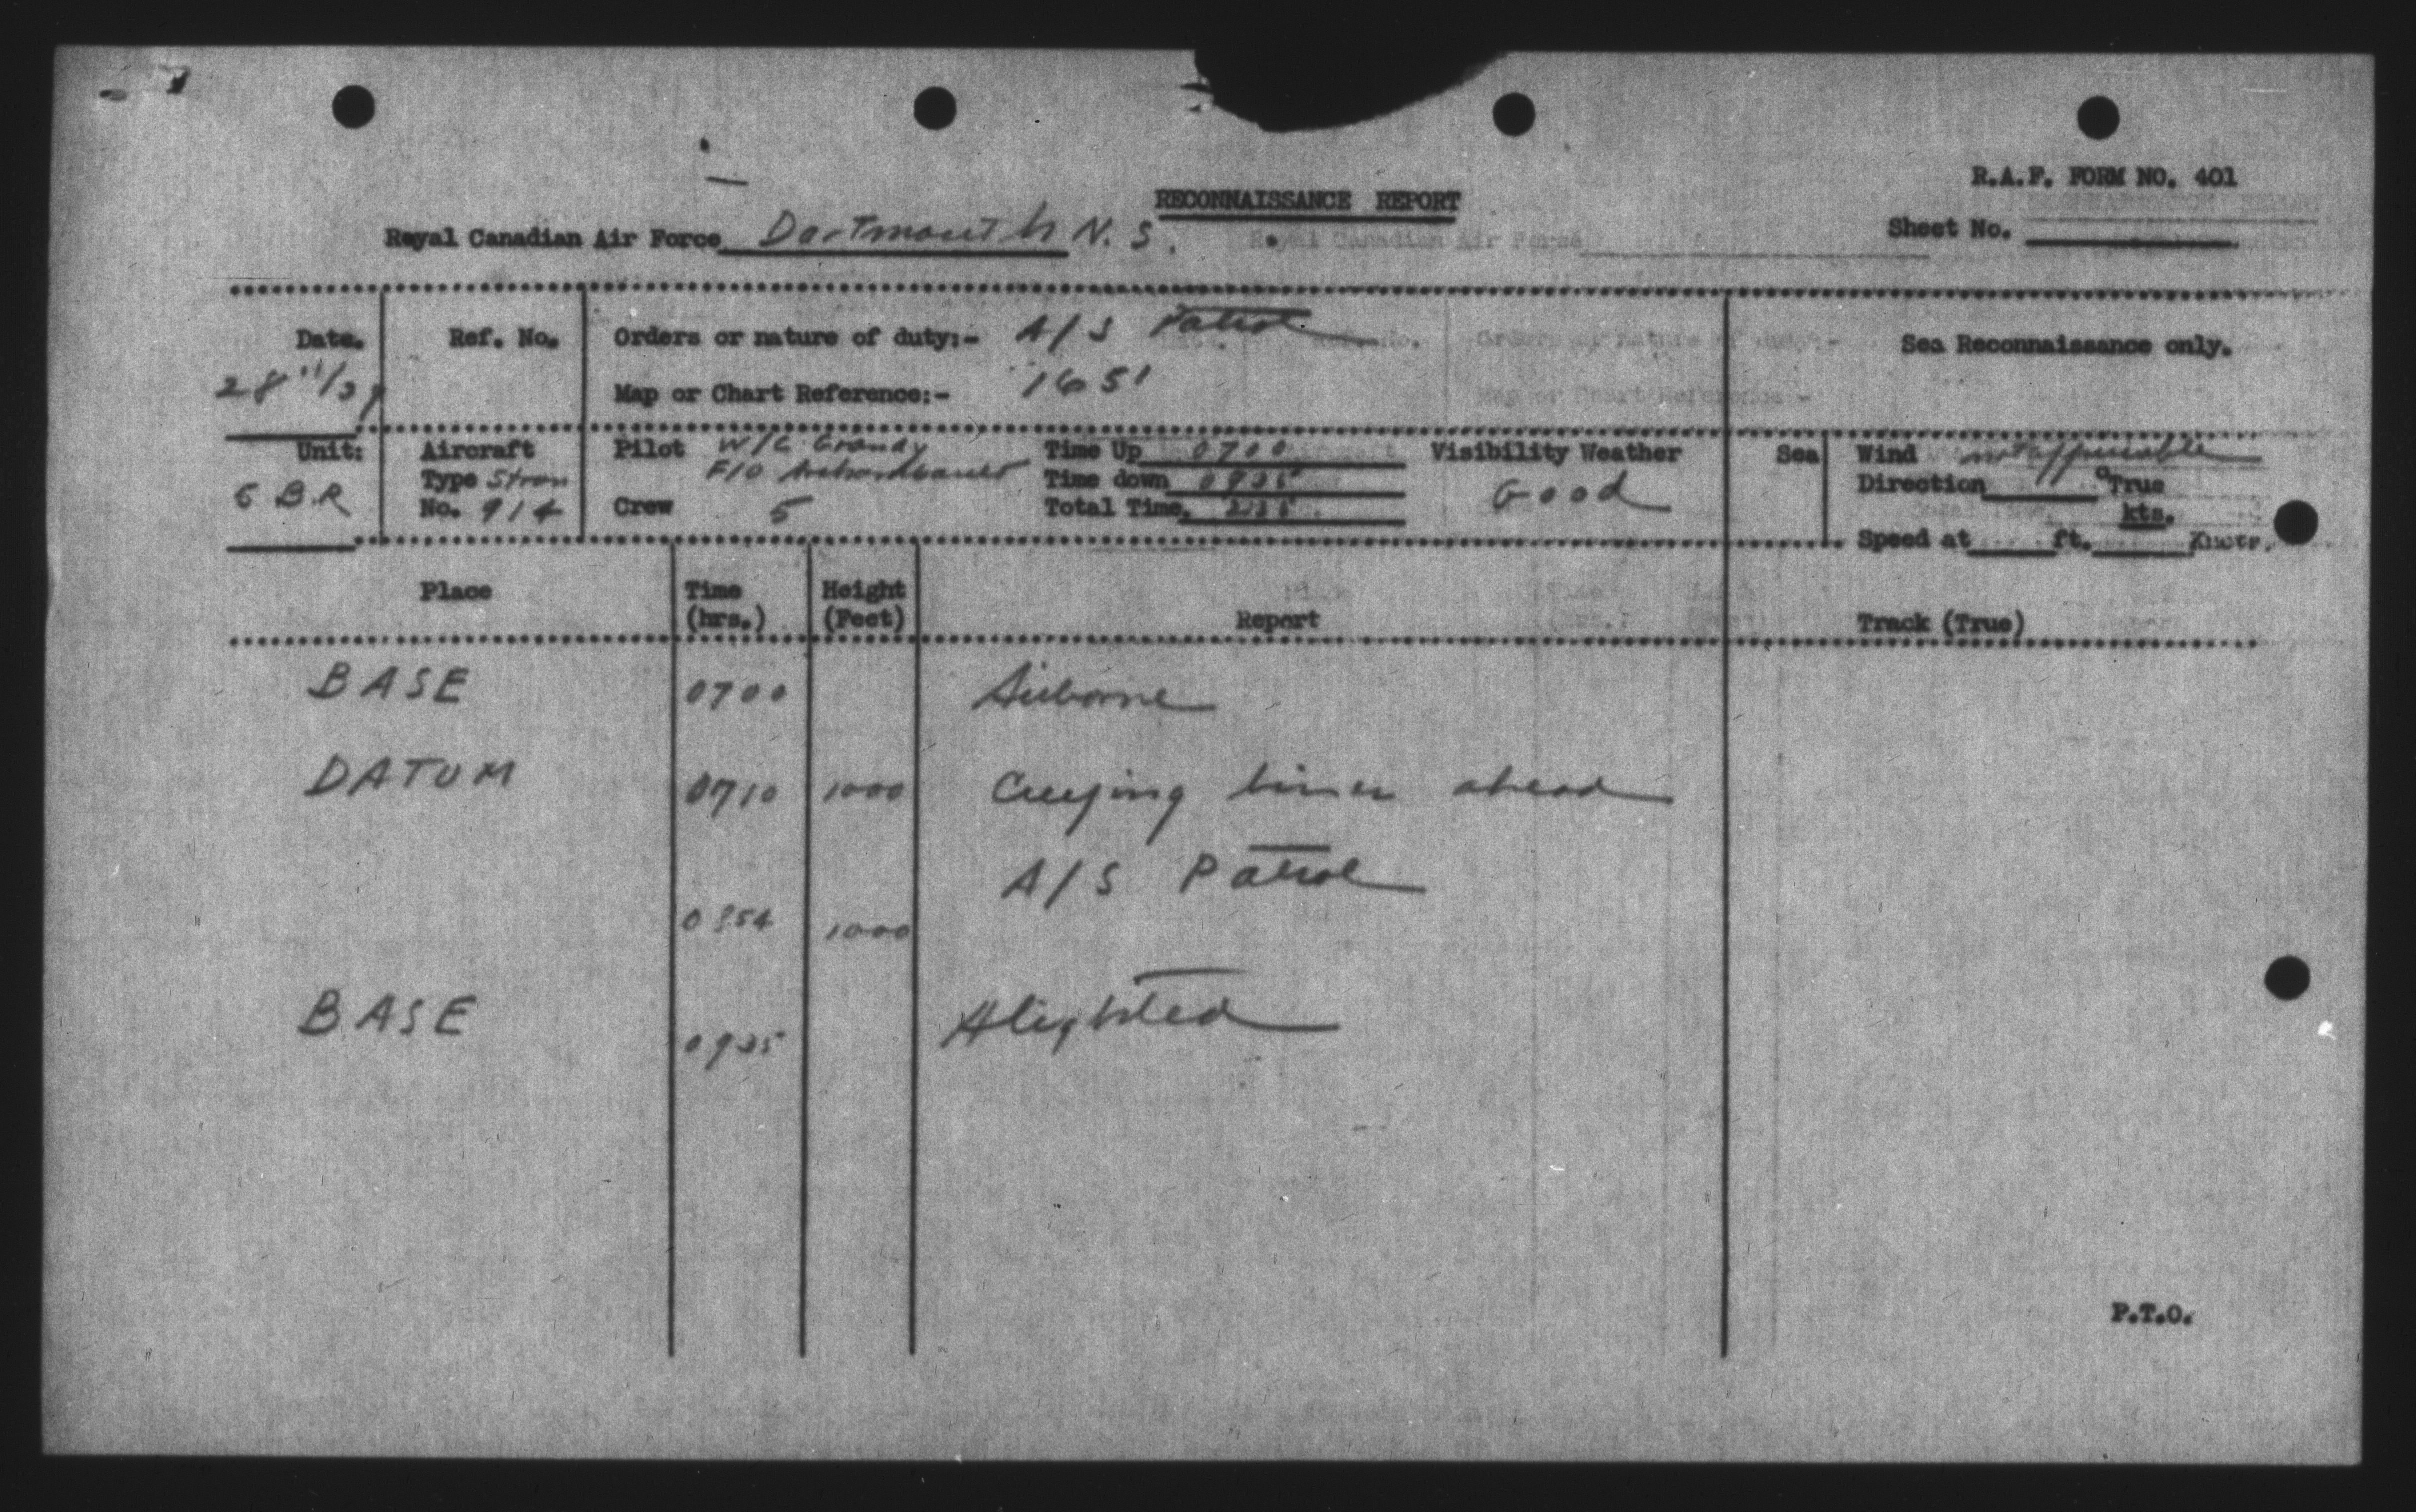 R.A.F. FORM NO. 401
RECONNAISSANCE REPORT
Royal Canadian Air Force Dartmouth N. S.
Sheet No.
Date. Ref. No. Orders or nature of duty:- A/S Patrol Sea Reconnaissance only.
28/11/39 Map or Chart Reference:- 1651
Unit: Aircraft Pilot W/C Time Up 0700 Visibility Weather Sea Wind
Type Stran F/O Time down 0935 Direction °True
5 B.R No. 914 Crew 5 Total Time. 2:35 Good kts.
Speed at ft. Knots.
Place Time Height
(hrs.) (Feet) Report Track (True)
BASE 0700 Airborne
DATUM 0710 1000 ahead
A/S Patrol
0854 1000
BASE 0935 Alighted
P.T.O.